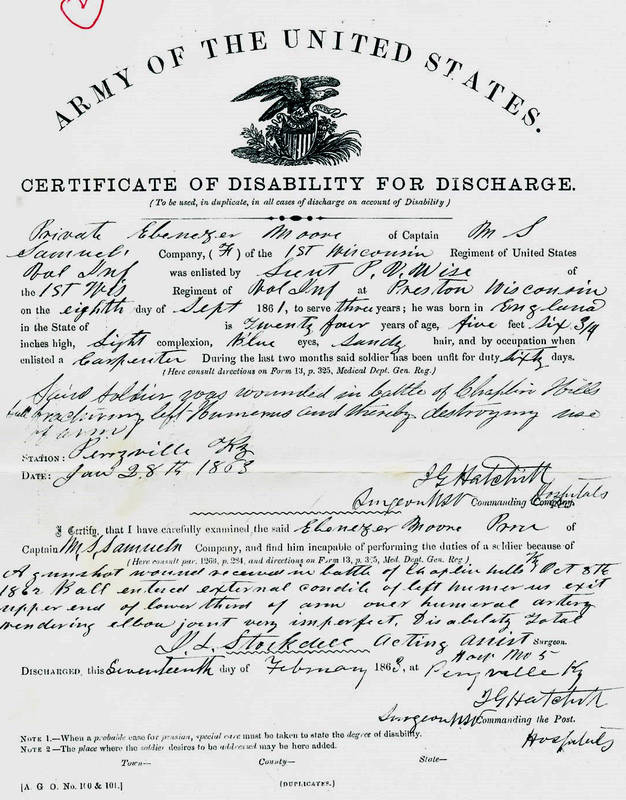 ARMY OF THE UNITED STATES.
CERTIFICATE OF DISABILITY FOR DISCHARGE.
(To be used, in duplicate, in all cases of discharge on account of Disability)
Private Ebenezer Moore of Captain M S
Samuels Company, (F) of the 1st Wisconsin Regiment of United States
Vol Inf was enlisted by Lieut P. V. Wise of
the 1st Wis Regiment of Vol Inf at Preston Wisconsin
on the eighth day of Sept 1861, to serve three years; he was born in England
in the State of is Twenty four years of age, five feet six 3/4
inches high, Light complexion, Blue eyes, Sandy hair, and by occupation when
enlisted a Carpenter During the last two months said soldier has been unfit for duty sixty days.
(Here consult directions on Form 13, p. 325, Medical Dept. Gen. Reg.)
Said soldier was wounded in battle of Chaplin Hills
ball fracturing left humerus and thereby destroying use
of arm
STATION: Perryville Ky
DATE: Jan 28th 1863
J G Hatchitt
Surgeon USV Commanding Company. Hospitals
I Certify, that I have carefully examined the said Ebenezer Moore of
Captain M S Samuels Company, and find him incapable of performing the duties of a soldier because of
(Here consult par. 1260, p. 284, and directions on Form 13, p. 325, Med. Dept. Gen. Reg.)
A gunshot wound received in battle of Chaplin hills Ky Oct 8th
1862 Ball entered external condile of left humerus exit
upper end of lower third of arm over humeral artery
rendering elbow joint very imperfect. Disability Total
Stockdell Acting Assist Surgeon.
Hosp No 5
DISCHARGED, this Seventeenth day of February 1863, at Perryville Ky
J G Hatchitt
Surgeon USV Commanding the Post.
Hospitals
NOTE 1.—When a probable case for pension, special care must be taken to state the degree of disability.
NOTE 2—The place where the soldier desires to be addressed may be here added.
Town— County— State—
[A. G. O. No. 100 & 101.] (DUPLICATES.)